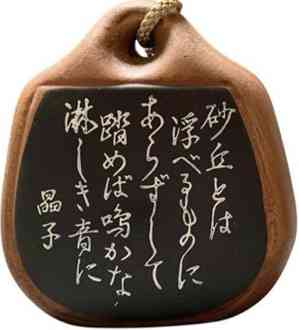 砂丘とは
浮べるものに
あらずして
踏めば鳴かな
淋しき音に
晶子